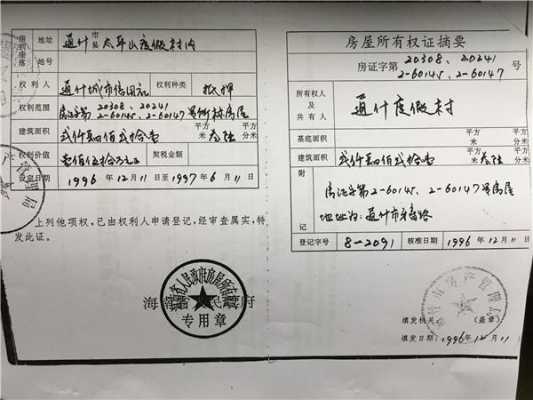 地址 通什市县太平山度假村内
地号
权利人 通什城市信用社 权利种类 抵押
权利范围 房证字第20308、20241 2-60145、2-60147号
建筑面积 平方米 平方分米
权利价值 壹佰伍拾万元 契税金额
1996年12月11日至1997年6月11日
上列他项权,已由权利人申请登记,经审查属实,特
发此证。
海南省人民政府
专用章
房屋所有权证摘要
房证字第 20308、20241 2-60145、2-60147 号
所有权人及共有人 通什度假村
基底面积 平方米 平方分米
建筑面积 平方米 平方分米
附记 房证字第2-60145、2-60147号房屋
地址为:通什市
登记字号 8-2091 核准日期 1996年12月11日
填发机关: (盖章)
填发日期:1996年12月11